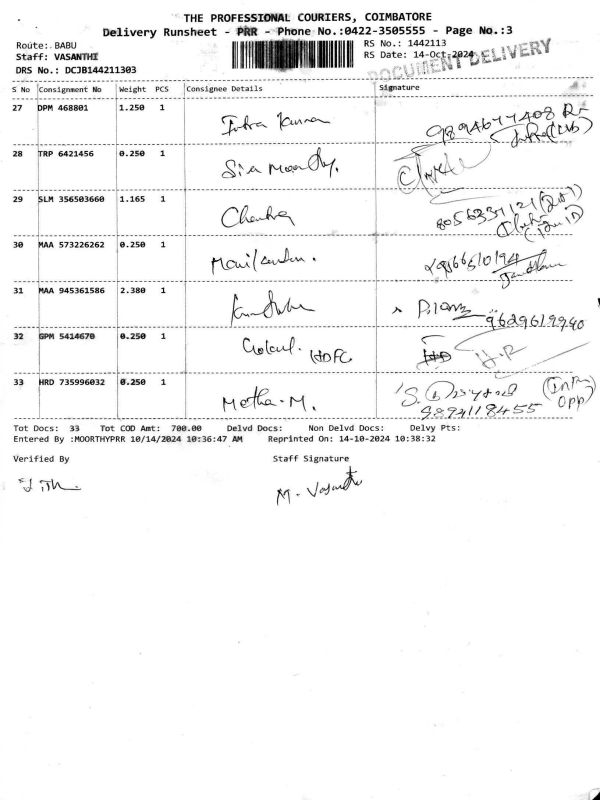 THE PROFESSIONAL COURIERS, COIMBATORE
Delivery Runsheet - PRR - Phone No.:0422-3505555 - Page No.:3
Route: BABU
RS No.: 1442113
Staff: VASANTHI
RS Date: 14-Oct-2024
DRS No.: DCJB144211303
DOCUMENT DELIVERY
S No Consignment No Weight PCS Consignee Details Signature
27 DPM 468801 1.250 1
28 TRP 6421456 0.250 1 Siva Moorthy.
29 SLM 356503660 1.165 1 Chandra
30 MAA 573226262 0.250 1 Manikandan.
31 MAA 945361586 2.380 1 9629619940
32 GPM 5414670 0.250 1 Gokul. HDFC
33 HRD 735996032 0.250 1 Metha. M. 9894118455
Tot Docs: 33 Tot COD Amt: 700.00 Delvd Docs: Non Delvd Docs: Delvy Pts:
Entered By :MOORTHYPRR 10/14/2024 10:36:47 AM Reprinted On: 14-10-2024 10:38:32
Verified By Staff Signature
M. Vasanthi